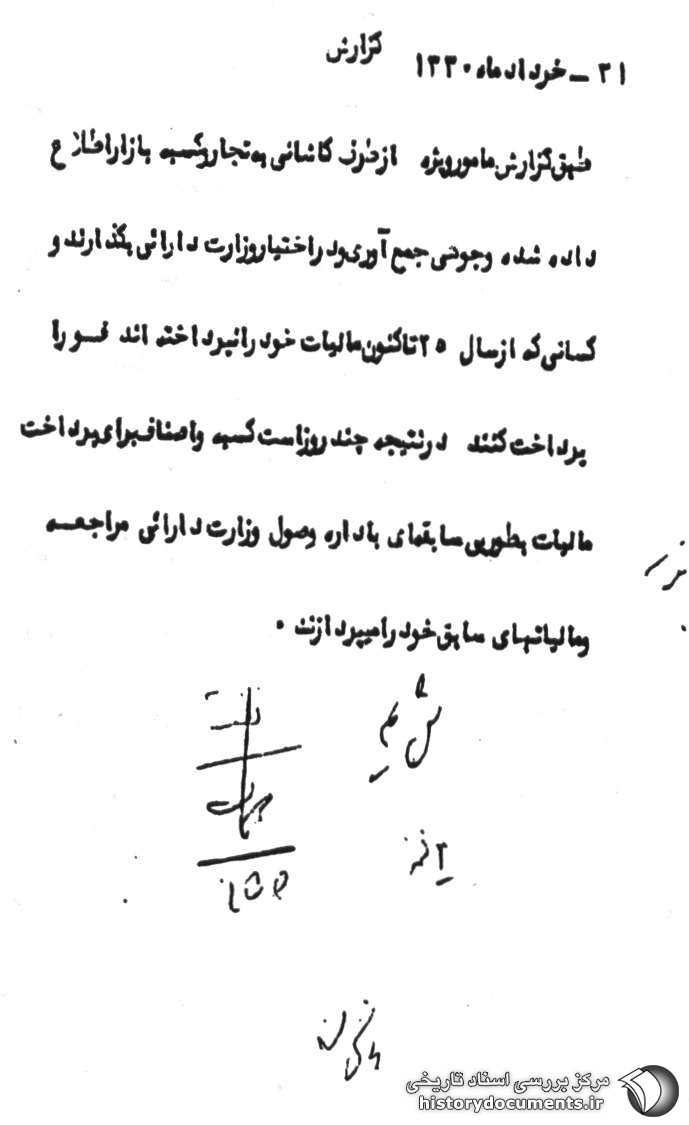 گزارش
۲۱ - خرداد ماه ۱۳۳۰
طبق گزارش مامور ویژه از طرف کاشانی به تجار و کسبه بازار اطلاع
داده شده وجوهی جمع آوری و در اختیار وزارت دارائی بگذارند و
کسانی که از سال ۲۵ تا کنون مالیات خود را نپرداخته اند فورا
پرداخت کنند در نتیجه چند روز است کسبه و اصناف برای پرداخت
مالیات بطور بی سابقه‌ای باداره وصول وزارت دارائی مراجعه
و مالیاتهای سابق خود را میپردازند ۰
مرکز بررسی اسناد تاریخی
historydocuments.ir